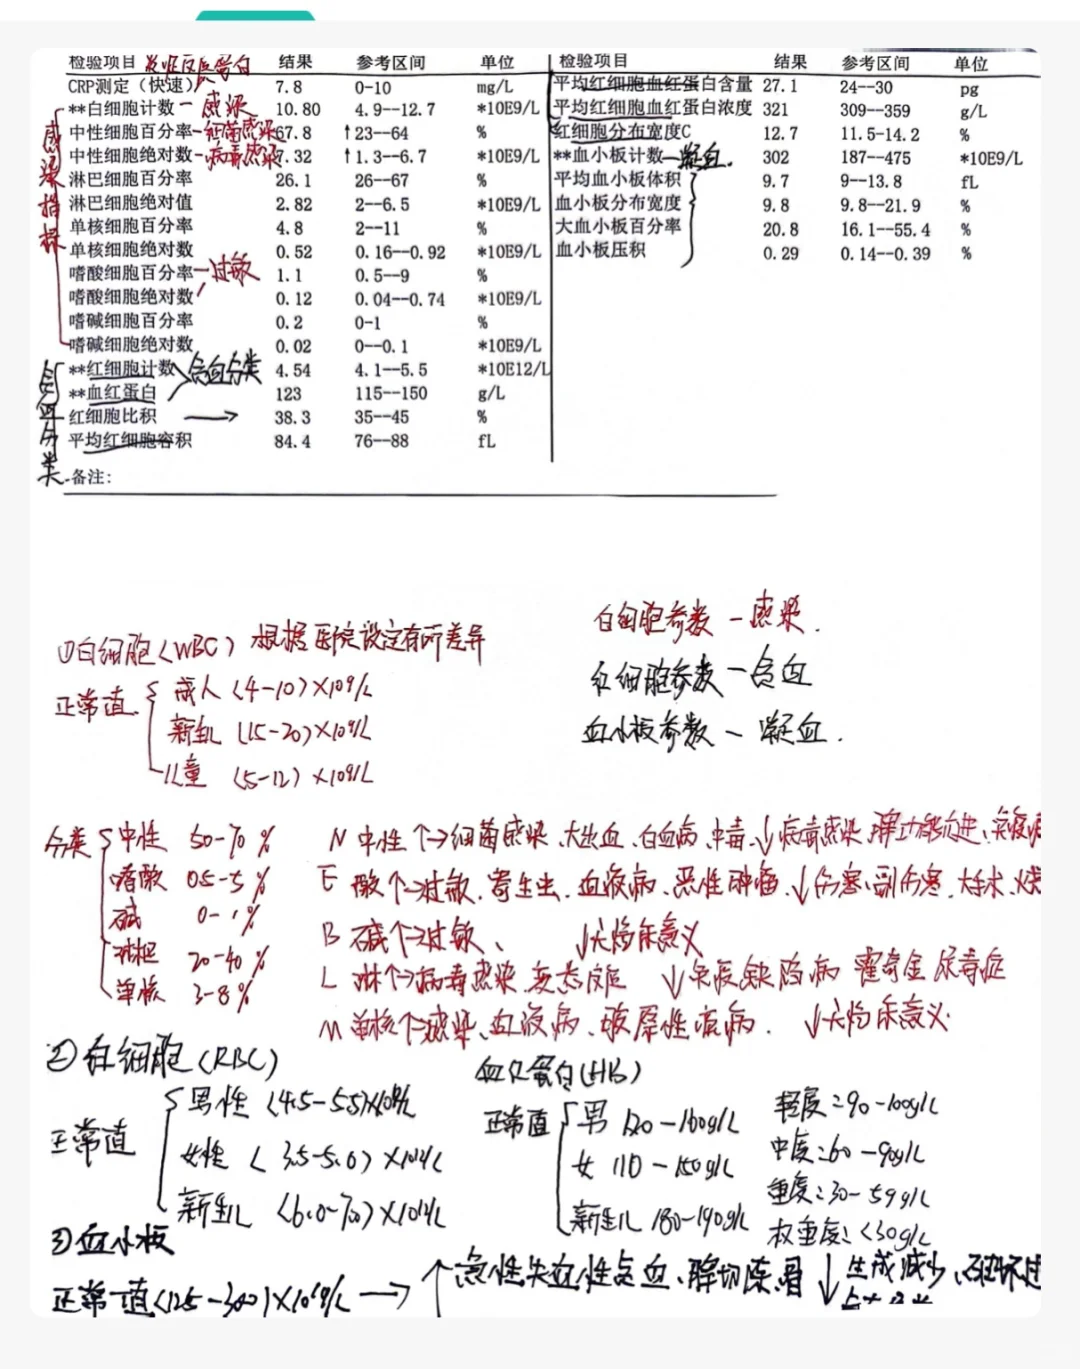 检验项目 结果 参考区间 单位
CRP测定(快速) 7.8 0-10 mg/L
**白细胞计数 - 感染 10.80 4.9--12.7 *10E9/L
中性细胞百分率 - 细菌感染 67.8 ↑23--64 %
中性细胞绝对数 - 病毒感染 7.32 ↑1.3--6.7 *10E9/L
淋巴细胞百分率 26.1 26--67 %
淋巴细胞绝对值 2.82 2--6.5 *10E9/L
单核细胞百分率 4.8 2--11 %
单核细胞绝对数 0.52 0.16--0.92 *10E9/L
嗜酸细胞百分率 - 过敏 1.1 0.5--9 %
嗜酸细胞绝对数 0.12 0.04--0.74 *10E9/L
嗜碱细胞百分率 0.2 0-1 %
嗜碱细胞绝对数 0.02 0--0.1 *10E9/L
感染指标
**红细胞计数 贫血分类 4.54 4.1--5.5 *10E12/L
**血红蛋白 123 115--150 g/L
红细胞比积 → 38.3 35--45 %
平均红细胞容积 84.4 76--88 fL
贫血分类
备注:
检验项目 结果 参考区间 单位
平均红细胞血红蛋白含量 27.1 24--30 pg
平均红细胞血红蛋白浓度 321 309--359 g/L
红细胞分布宽度C 12.7 11.5-14.2 %
**血小板计数 - 凝血. 302 187--475 *10E9/L
平均血小板体积 9.7 9--13.8 fL
血小板分布宽度 9.8 9.8--21.9 %
大血小板百分率 20.8 16.1--55.4 %
血小板压积 0.29 0.14--0.39 %
白细胞参数 - 感染.
红细胞参数 - 贫血
血小板参数 - 凝血.
①白细胞(WBC) 根据医院设定有所差异
正常值
成人 (4-10)×10⁹/L
新生儿 (15-20)×10⁹/L
儿童 (5-12)×10⁹/L
分类
中性 50-70%
嗜酸 0.5-5%
碱 0-1%
淋巴 20-40%
单核 3-8%
N 中性↑→细菌感染、大出血、白血病、中毒、↓病毒感染、脾功能亢进、
E 酸↑→过敏、寄生虫、血液病、恶性肿瘤、↓伤寒、副伤寒、大手术、
B 碱↑→过敏、 ↓无临床意义
L 淋↑→病毒感染、变态反应 ↓免疫缺陷病 霍奇金 尿毒症
M 单核↑→感染、血液病、 ↓无临床意义
②红细胞(RBC)
正常值
男性 (4.5-5.5)×10¹²/L
女性 (3.5-5.0)×10¹²/L
新生儿 (6.0-7.0)×10¹²/L
血红蛋白(HB)
正常值
男 120-160g/L
女 110-150g/L
新生儿 180-190g/L
轻度:90-100g/L
中度:60-90g/L
重度:30-59g/L
极重度:<30g/L
③血小板
正常值(125-300)×10⁹/L → ↑急性失血性贫血、脾切除、骨 ↓生成减少、